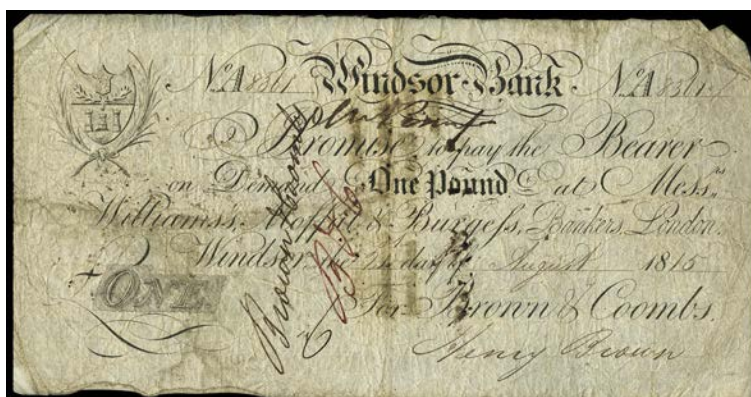 No. A 8361 Windsor Bank No. A 8361
I Promise to pay the Bearer
on Demand One Pound at Messrs.
Williams, Moffit & Burgess, Bankers, London.
Windsor the day of August 1815
£ ONE
For Brown & Coombs.
Henry Brown